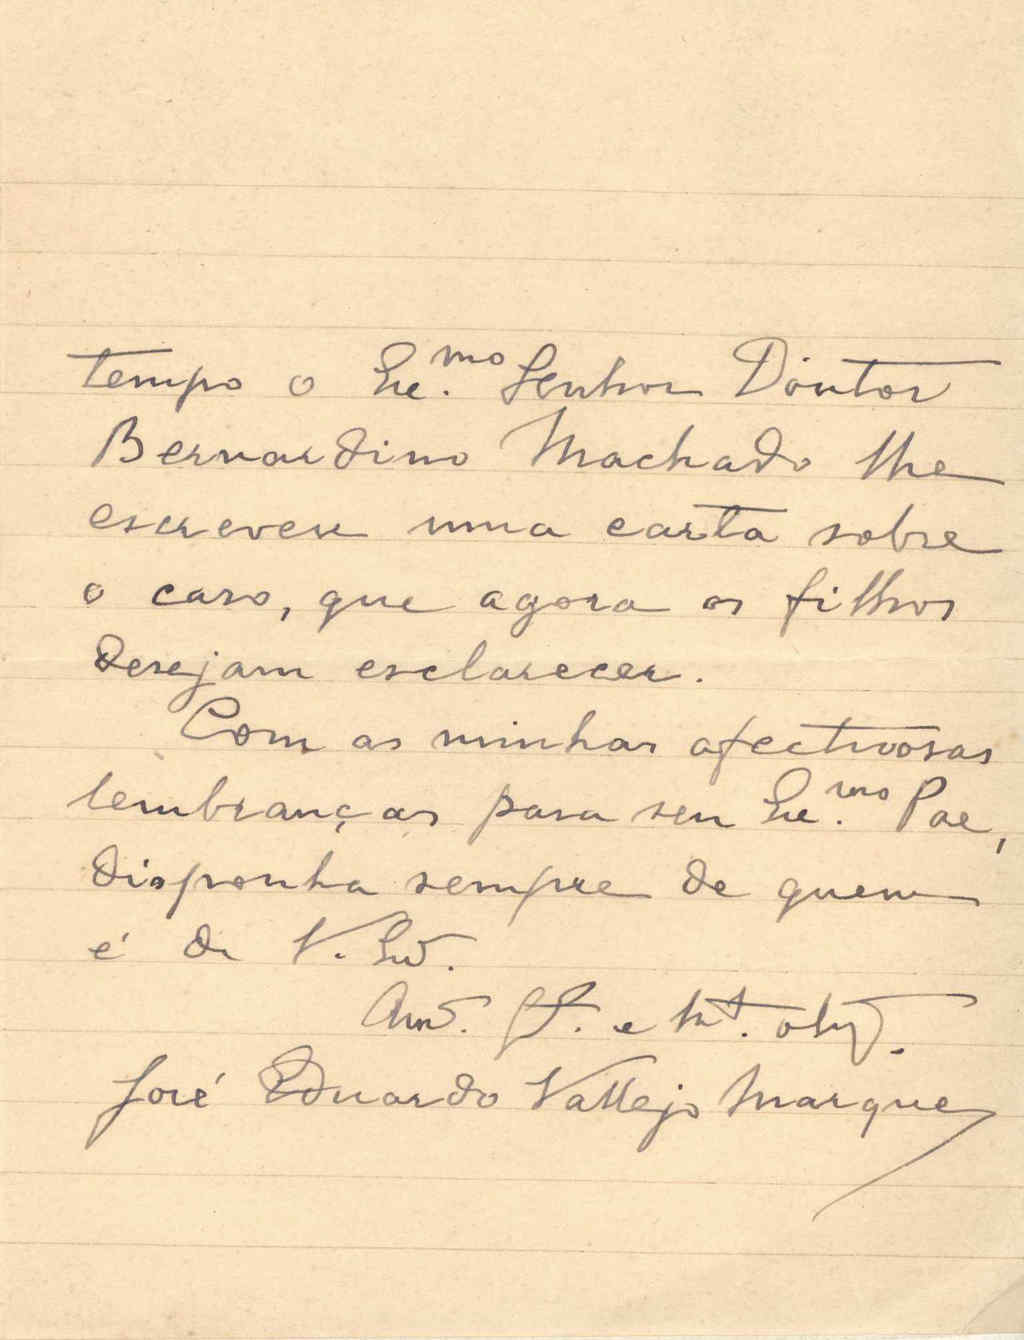 tempo o Exc.mo Senhor Doutor
Bernardino Machado lhe
escreveu uma carta sobre
o caso, que agora os filhos
desejam esclarecer.
Com as minhas afectuosas
lembranças para seu Exc.mo Pae,
disponha sempre de quem
é de V. Exª.
Amº. e mtº. obgdº.
José Eduardo Vallejo Marques